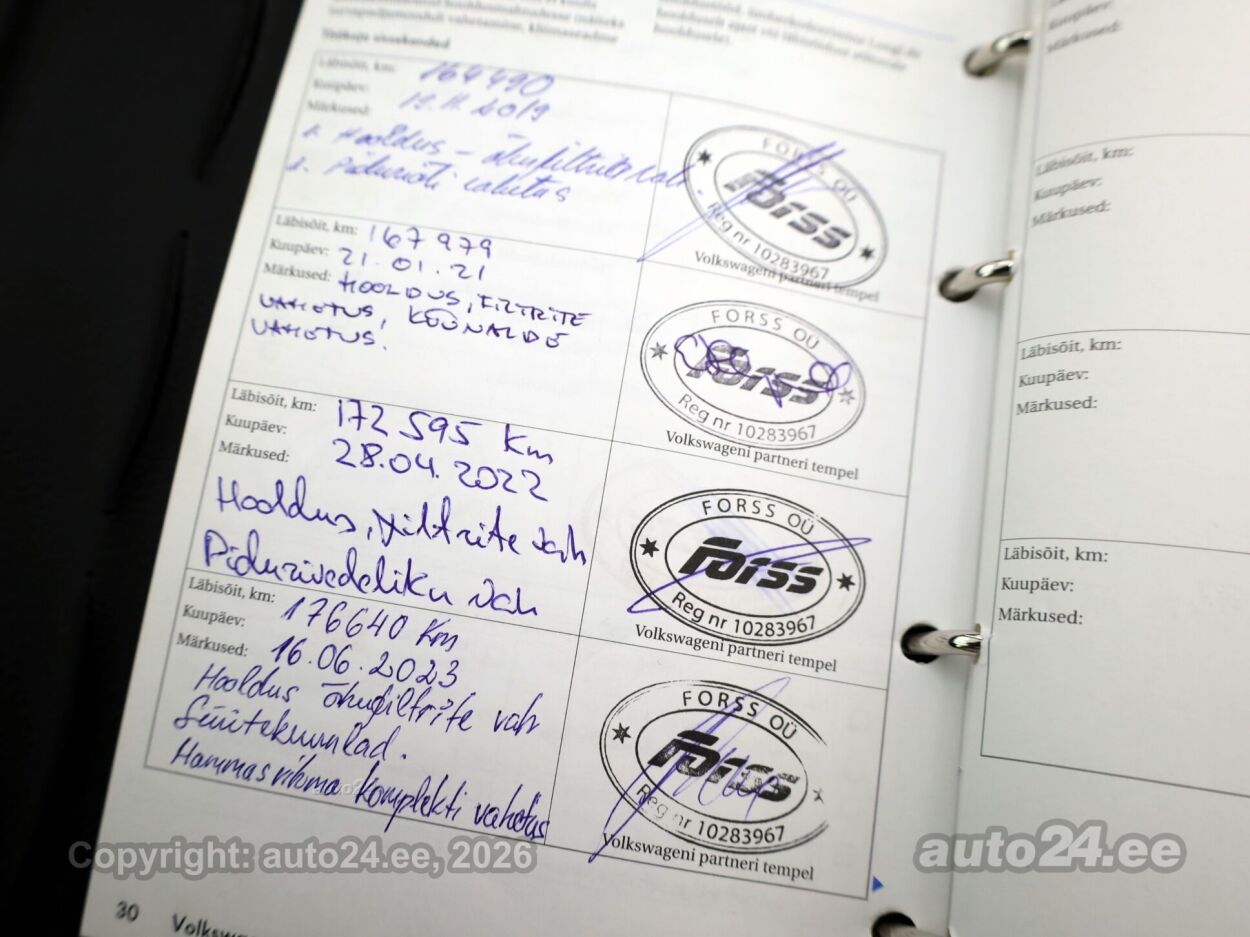 Läbisõit, km: 164490
Kuupäev: 12.11.2019
Märkused:
1. Hooldus - õhufiltrite vah.
2. Piduriõli vahetus
FORSS OÜ
Forss
Reg nr 10283967
Volkswageni partneri tempel
Läbisõit, km: 167 979
Kuupäev: 21.01.21
Märkused: HOOLDUS, FILTRITE
VAHETUS, KÜÜNALDE
VAHETUS.
FORSS OÜ
Forss
Reg nr 10283967
Volkswageni partneri tempel
Läbisõit, km: 172 595 km
Kuupäev: 28.04.2022
Märkused:
Hooldus, filtrite vah
Pidurivedeliku vah
FORSS OÜ
Forss
Reg nr 10283967
Volkswageni partneri tempel
Läbisõit, km: 176640 km
Kuupäev: 16.06.2023
Märkused:
Hooldus õhufiltrite vah
Süüteküünlad.
Hammasrihma komplekti vahetus
FORSS OÜ
Forss
Reg nr 10283967
Volkswageni partneri tempel
30 Volksw
Kuupäev:
Märkused:
Läbisõit, km:
Kuupäev:
Märkused:
Läbisõit, km:
Kuupäev:
Märkused:
Läbisõit, km:
Kuupäev:
Märkused:
Copyright: auto24.ee, 2026
auto24.ee